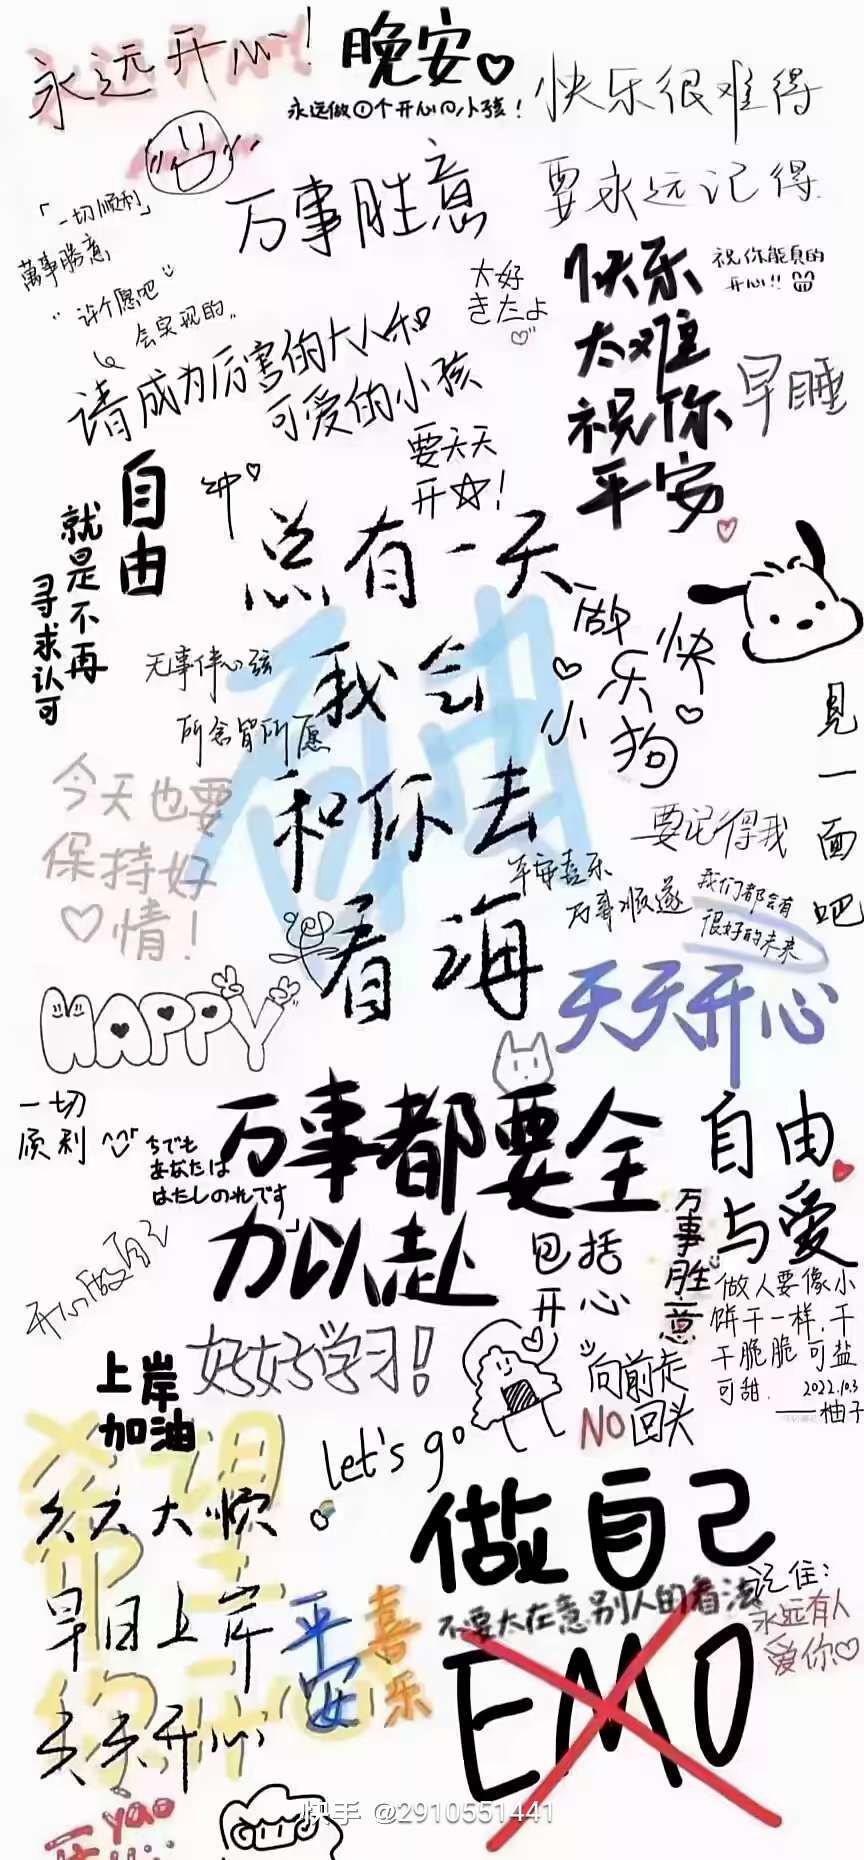 永远开心!
晚安
永远做①个开心の小孩!
快乐很难得
要永远记得
「一切顺利」
萬事勝意
"许个愿吧
会实现的..
万事胜意
大好
きだよ
快乐
太难
祝你
平安
祝你能真的
开心!!
早睡
请成为厉害的大人和
可爱的小孩
要天天
开☆!
自由
就是不再
寻求认可
冲
总有一天
我会
和你去
看海
自由
无事伴心弦
所念皆所愿
做
快
乐
小
狗
见一面吧
今天也要
保持好
情!
要记得我
平安喜乐
万事顺遂
我们都会有
很好的未来
HAPPY
天天开心
一切
顺利
万事都要全
力以赴
包括
开心
自由
与爱
万事胜意
做人要像小
饼干一样,干
干脆脆可盐
可甜.
2022.10.3
——柚子
开心做自己
好好学习!
上岸
加油
向前走
NO回头
let's go
希望
你
天天大顺
早日上岸
天天开心
平安
喜乐
做自己
不要太在意别人的看法
EMO
记住:
永远有人
爱你
yao
快手 @2910551441